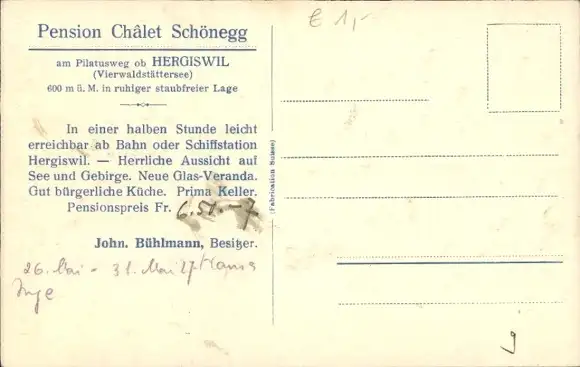 € 1,-
Pension Châlet Schönegg
am Pilatusweg ob HERGISWIL
(Vierwaldstättersee)
600 m ü. M. in ruhiger staubfreier Lage
In einer halben Stunde leicht
erreichbar ab Bahn oder Schiffstation
Hergiswil. — Herrliche Aussicht auf
See und Gebirge. Neue Glas-Veranda.
Gut bürgerliche Küche. Prima Keller.
Pensionspreis Fr. 6.50.-7
John. Bühlmann, Besitzer.
26. Mai - 31. Mai 27
Inge
(Fabrication Suisse)
9